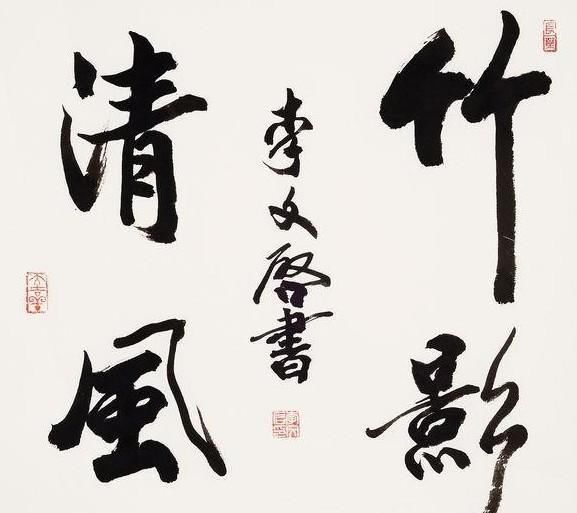 竹影
清風
李文啓書